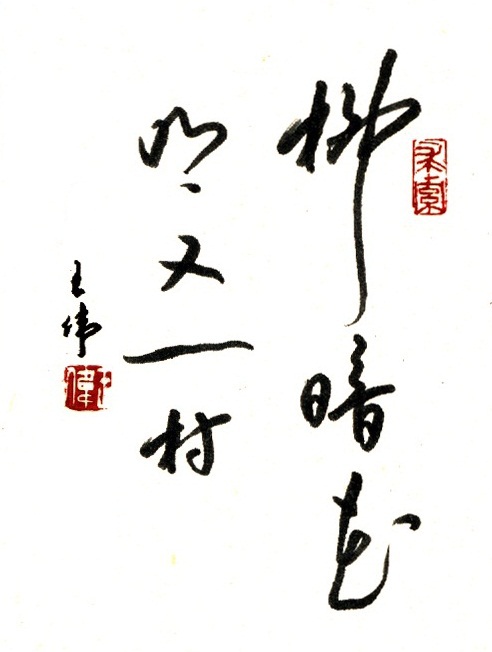 柳暗花
明又一村
王伟